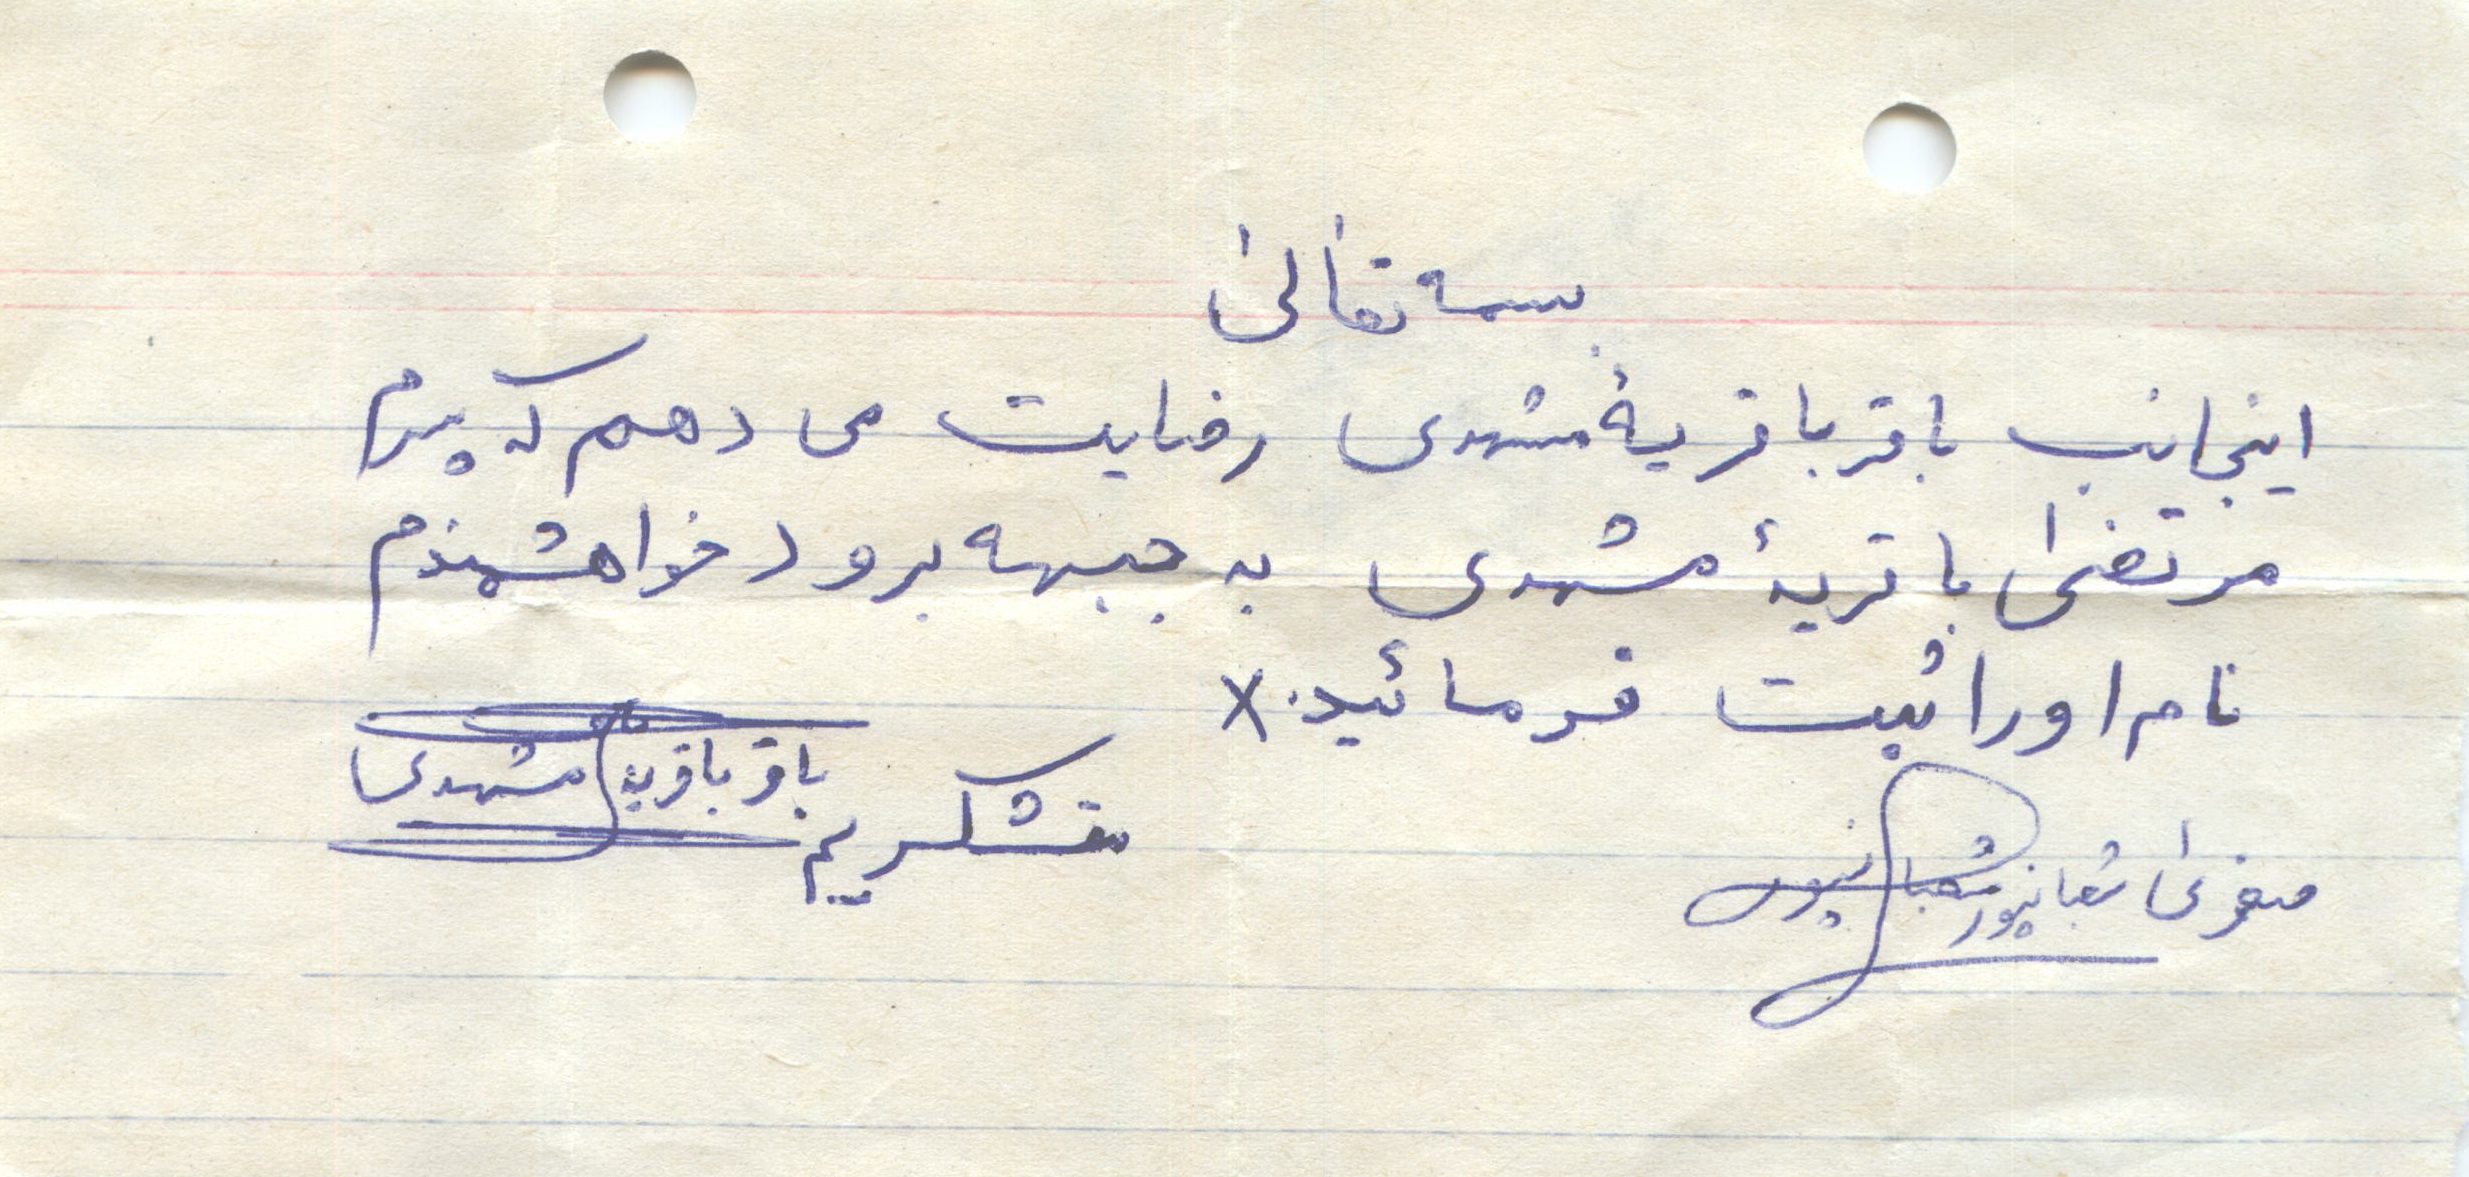 بسمه تعالیٰ
اینجانب باقر باقریهٔ مشهدی رضایت می دهم که پسرم
مرتضیٰ باقریهٔ مشهدی به جبهه برود خواهشمندم
نام او را ثبت فرمائید. X
متشکریم باقر باقریه مشهدی
صغریٰ شعبانپور شعبانپور